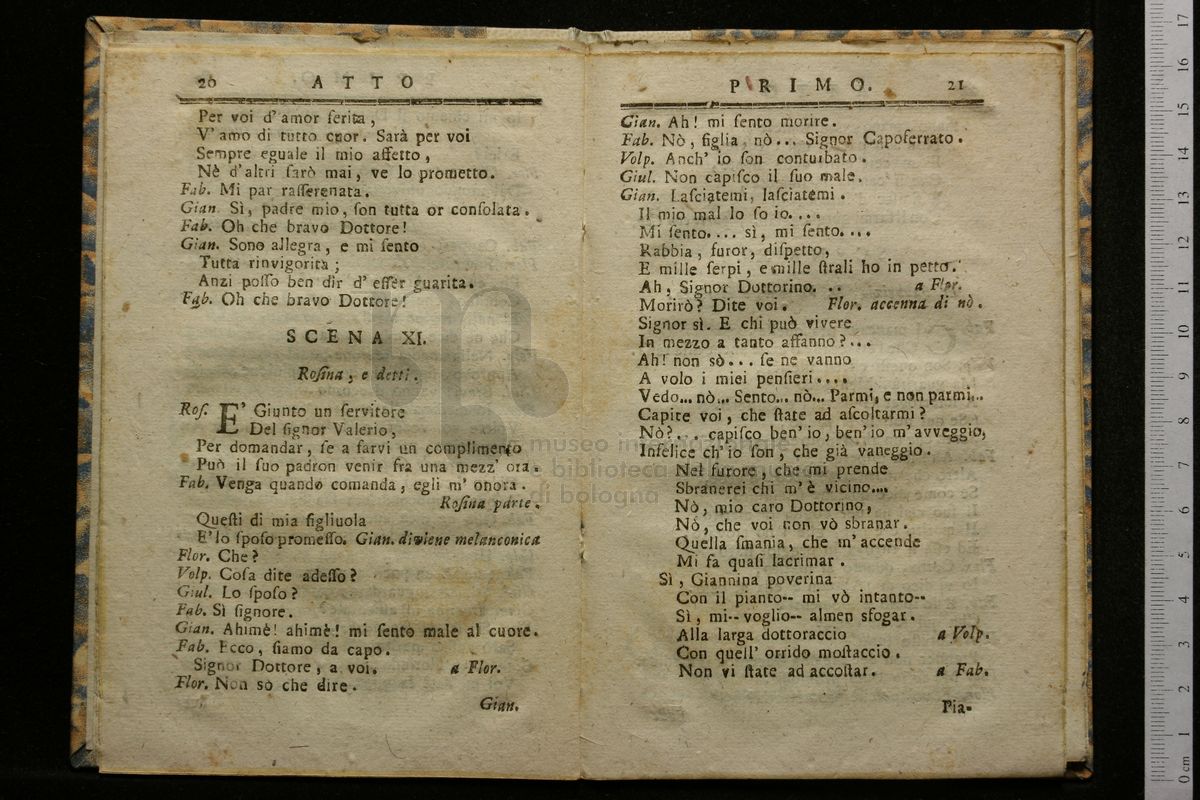 20 ATTO
Per voi d'amor ferita,
V'amo di tutto cuor. Sarà per voi
Sempre eguale il mio affetto,
Nè d'altri sarò mai, ve lo prometto.
Fab. Mi par rasserenata.
Gian. Sì, padre mio, son tutta or consolata.
Fab. Oh che bravo Dottore!
Gian. Sono allegra, e mi sento
Tutta rinvigorita;
Anzi posso ben dir d'esser guarita.
Fab. Oh che bravo Dottore!
SCENA XI.
Rosina, e detti.
Ros. E' Giunto un servitore
Del signor Valerio,
Per domandar, se a farvi un complimento
Può il suo padron venir fra una mezz' ora.
Fab. Venga quando comanda, egli m' onora.
Rosina parte.
Questi di mia figliuola
E'lo sposo promesso. Gian. diviene melanconica
Flor. Che?
Volp. Cosa dite adesso?
Giul. Lo sposo?
Fab. Sì signore.
Gian. Ahimè! ahimè! mi sento male al cuore.
Fab. Ecco, siamo da capo.
Signor Dottore, a voi. a Flor.
Flor. Non sò che dire.
Gian.
PRIMO. 21
Gian. Ah! mi sento morire.
Fab. Nò, figlia, nò... Signor Capoferrato.
Volp. Anch' io son conturbato.
Giul. Non capisco il suo male.
Gian. Lasciatemi, lasciatemi.
Il mio mal lo so io....
Mi sento.... sì, mi sento....
Rabbia, furor, dispetto,
E mille serpi, e mille strali ho in petto.
Ah, Signor Dottorino. .. a Flor.
Morirò? Dite voi. Flor. accenna di nò.
Signor sì. E chi può vivere
In mezzo a tanto affanno?...
Ah! non sò... se ne vanno
A volo i miei pensieri....
Vedo... nò... Sento... nò... Parmi, e non parmi...
Capite voi, che state ad ascoltarmi?
Nò?... capisco ben' io, ben' io m'avveggio,
Infelice ch'io son, che già vaneggio.
Nel furore, che mi prende
Sbranerei chi m'è vicino....
Nò, mio caro Dottorino,
Nò, che voi non vò sbranar.
Quella smania, che m'accende
Mi fa quasi lacrimar.
Sì, Giannina poverina
Con il pianto-- mi vò intanto--
Sì, mi-- voglio-- almen sfogar.
Alla larga dottoraccio a Volp.
Con quell' orrido mostaccio.
Non vi state ad accostar. a Fab.
Pia-
museo internazionale
e biblioteca della musica
di bologna
0 cm 1 2 3 4 5 6 7 8 9 10 11 12 13 14 15 16 17